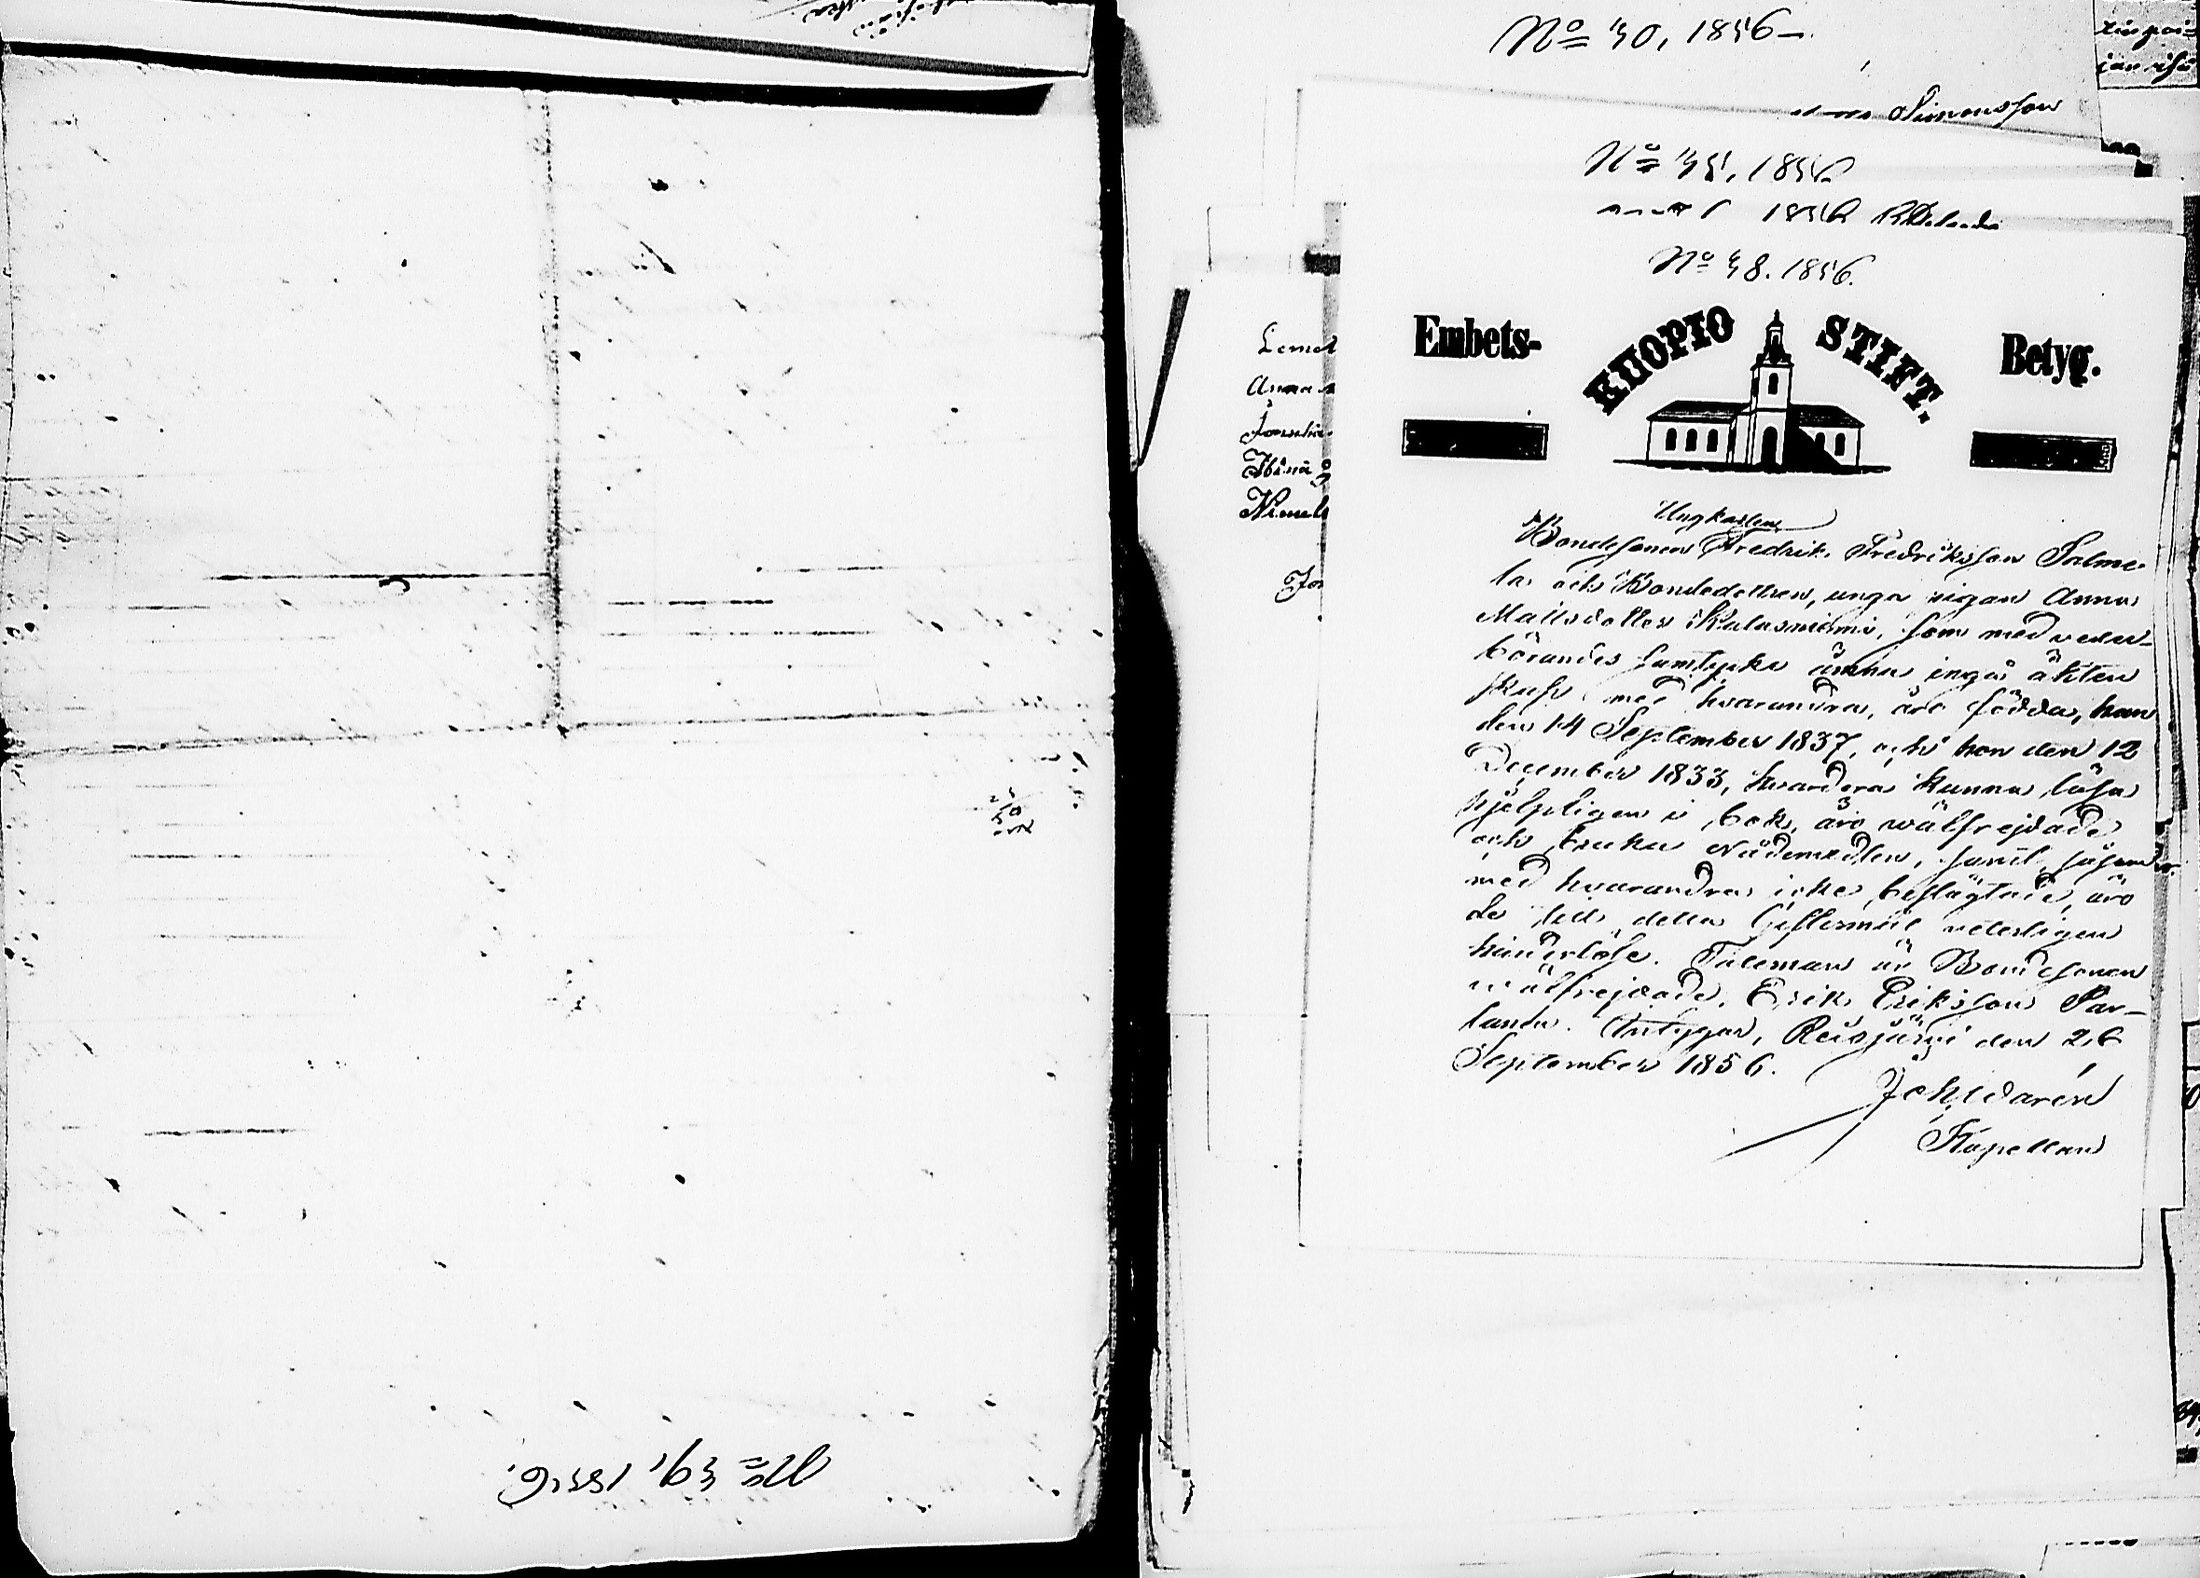 No 30, 1856.
Simonsson
No 35, 1856
1856
No 38. 1856.
Embets- KUOPIO STIFT. Betyg.
Ungkarlen
Bondesonen Fredrik Fredriksson Salme-
la och Bondedottren, unga pigan Anna
Mattsdotter Kalasniemi, som med veder-
börandes samtycke ämna ingå äkten
skap med hvarandra, äro födda, han
den 14 September 1837, och hon den 12
December 1833, hvardera kunna läsa
hjelpligen i bok, äro wälfrejdade
och bruka Nådemedlen, samt såsom
med hvarandra icke beslägtade, äro
de till detta Giftermål veterligen
hinderlöse. Taleman är Bondesonen
wälfrejdade, Erik Eriksson Par-
tanta. Intygar, Reisjärvi den 26
September 1856.
Joh Idarén
Kapellan
Lemet
Anna
Niemelä
Jo
No 39, 1856.